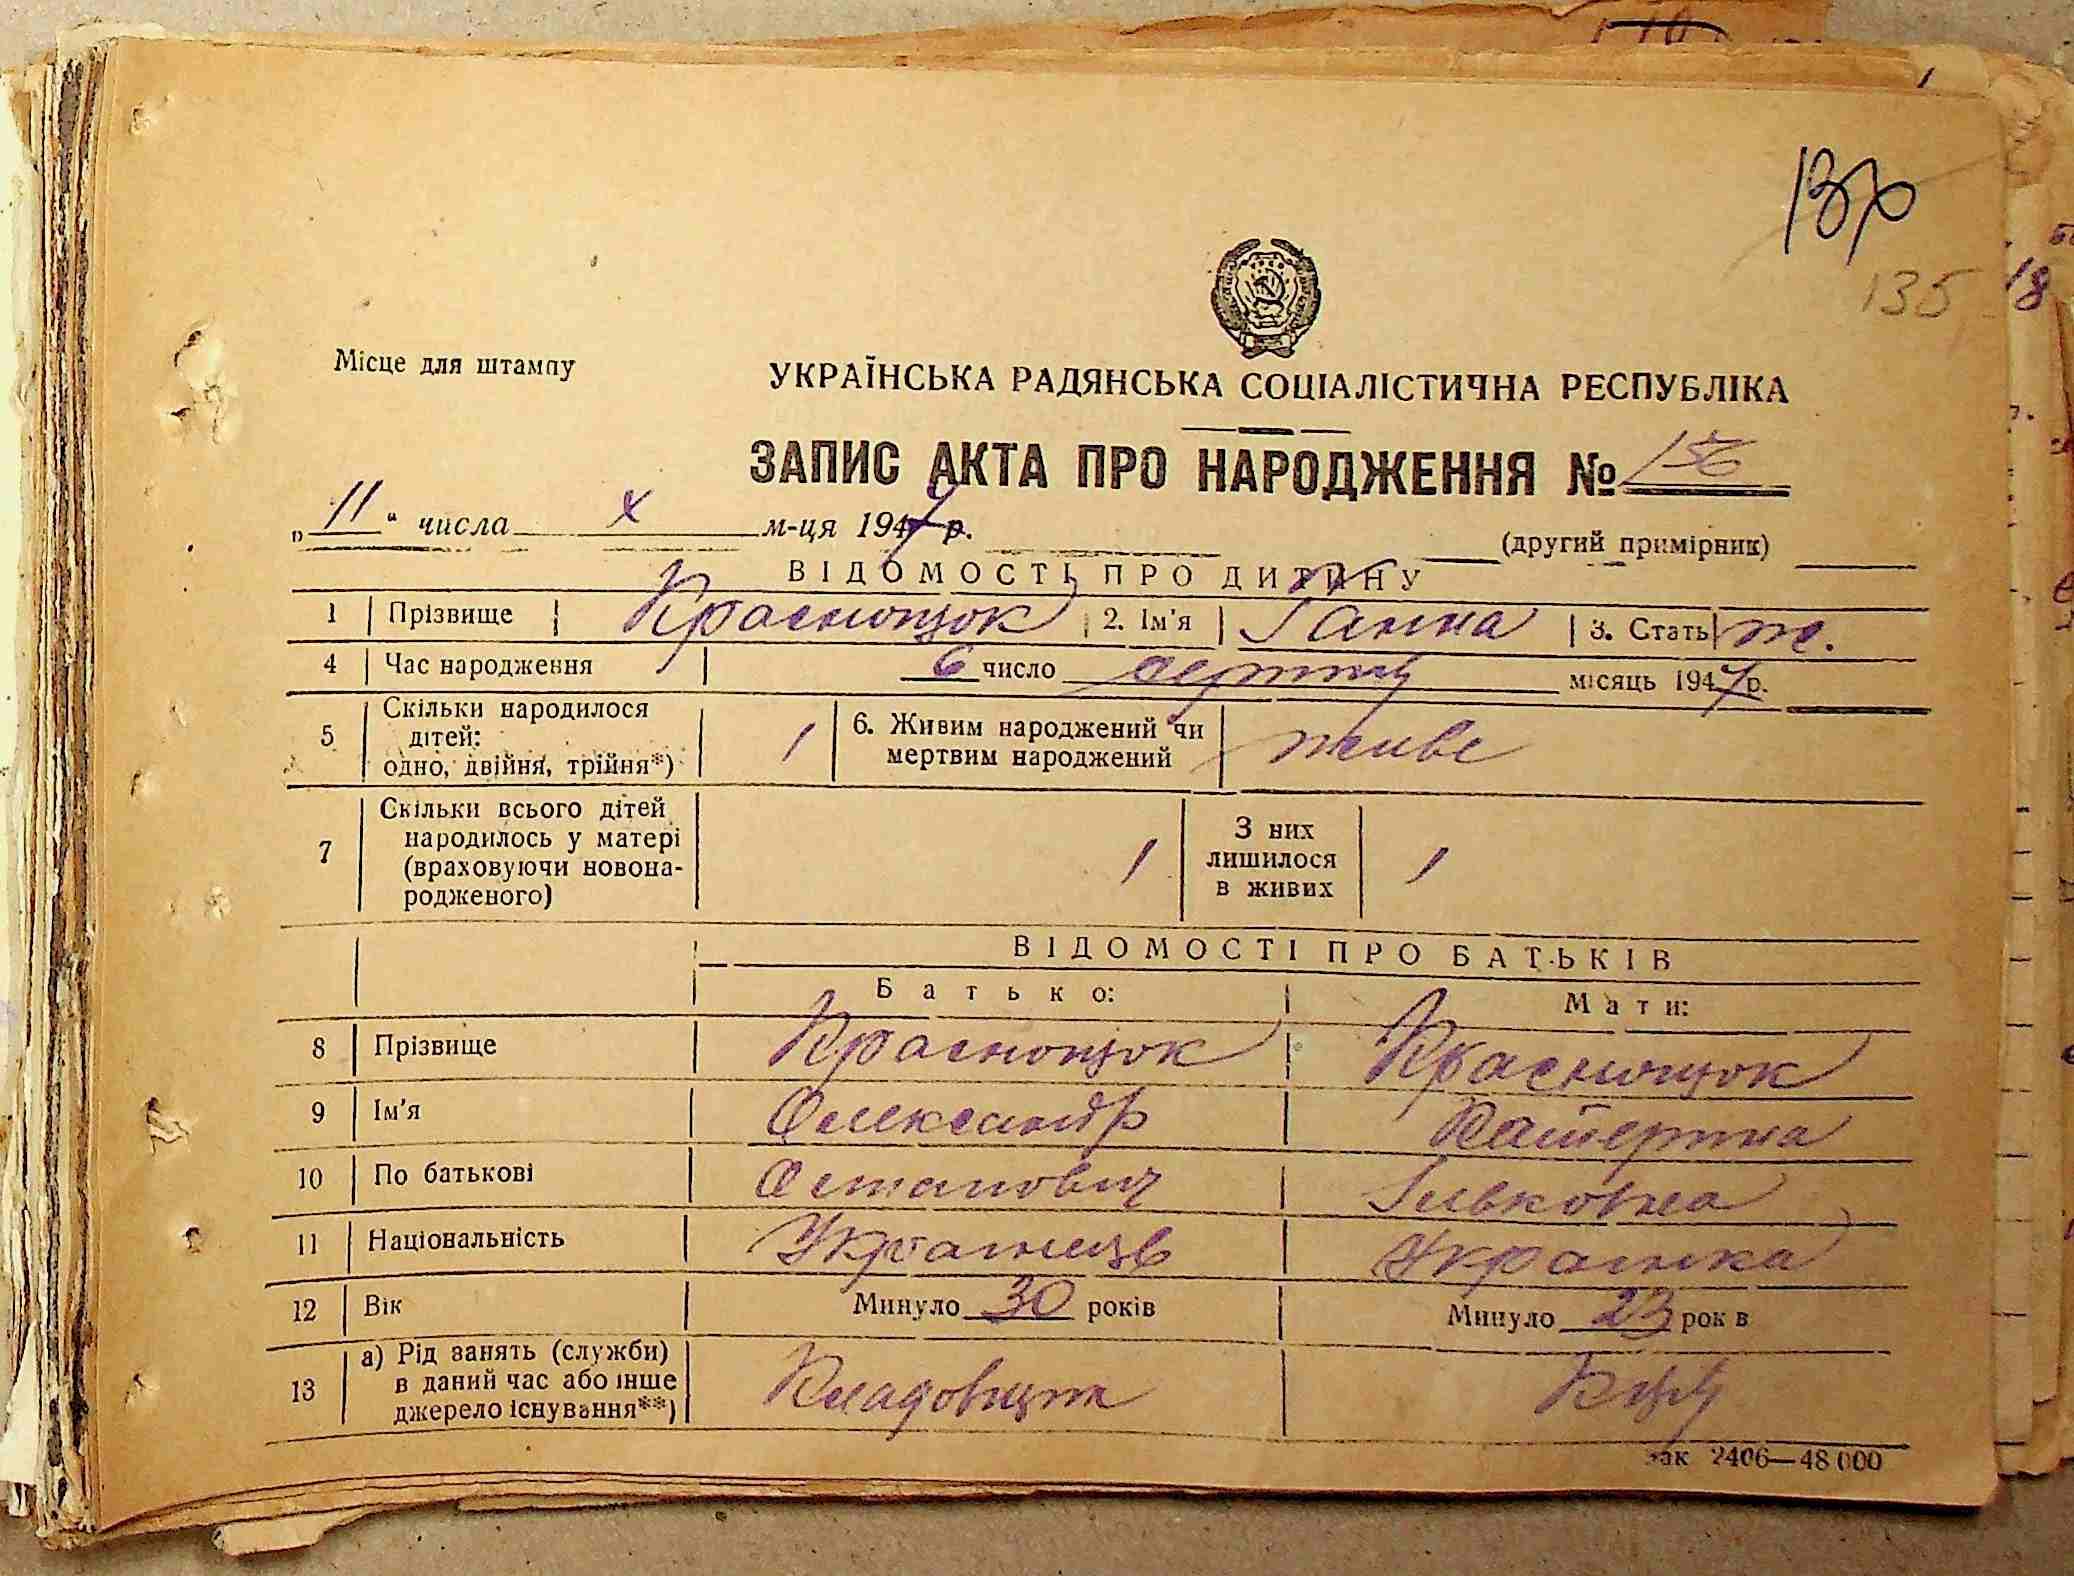 135
Місце для штампу
УКРАЇНСЬКА РАДЯНСЬКА СОЦІАЛІСТИЧНА РЕСПУБЛІКА
ЗАПИС АКТА ПРО НАРОДЖЕННЯ № 156
„11“ числа X м-ця 1947 р.
(другий примірник)
ВІДОМОСТІ ПРО ДИТИНУ
1 Прізвище Краснощок 2. Ім'я Ганна 3. Стать ж.
4 Час народження 6 число серпня місяць 1947 р.
5 Скільки народилося дітей: одно, двійня, трійня*) 1 6. Живим народжений чи мертвим народжений живе
7 Скільки всього дітей народилось у матері (враховуючи новона-родженого) 1 З них лишилося в живих 1
ВІДОМОСТІ ПРО БАТЬКІВ
Батько: Мати:
8 Прізвище Краснощок Краснощок
9 Ім'я Олександр Катерина
10 По батькові Остапович Ільковна
11 Національність Українець Українка
12 Вік Минуло 30 років Минуло 23 рок в
13 а) Рід занять (служби) в даний час або інше джерело існування**) Кладовщик
зак 2406—48 000